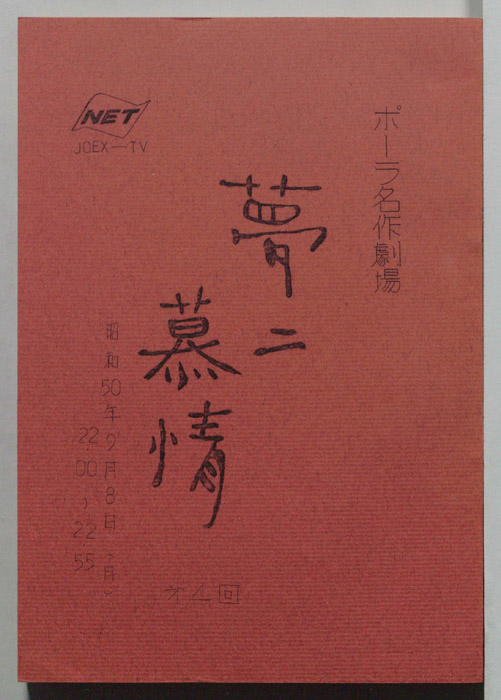 ポーラ名作劇場
NET
JOEX—TV
夢二
慕情
昭和50年9月8日(月)
22:00〜22:55
オ4回